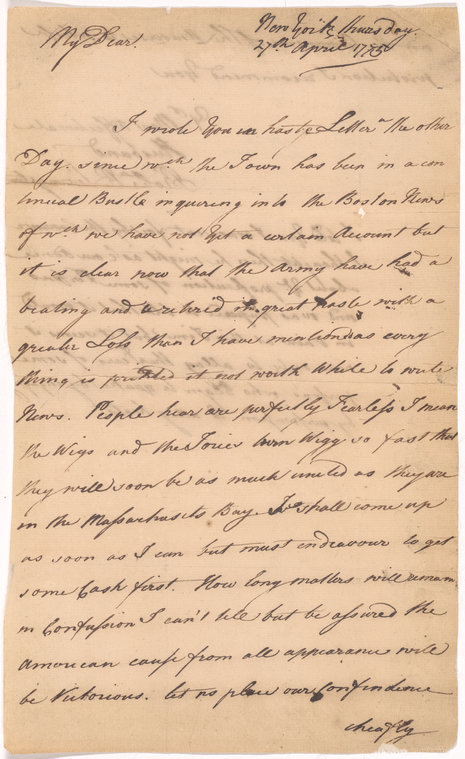 New York thursday
27th April 1775
My Dear!
I wrote You in haste a Letter the other
Day. sence wch the Town has been in a con
tinual Bustle inquering in to the Boston News
of wch we have not yet a certain Account but
it is clear now that the Army have had a
beating and retired in great haste with a
greater Loss than I have mention'd as every
thing is printed it not worth While to write
News. People hear are perfectly Fearless I mean
the Wigs and the Tories turn Wigg so fast that
they will soon be as much united as they are
in the Massachusits Bay. I shall come up
as soon as I can but must endeavour to get
some Cash first. How long matters will remain
in Confusion I can't tell but be assured the
American cause from all appearance will
be Victorious. let us place our Confindence
cheafly